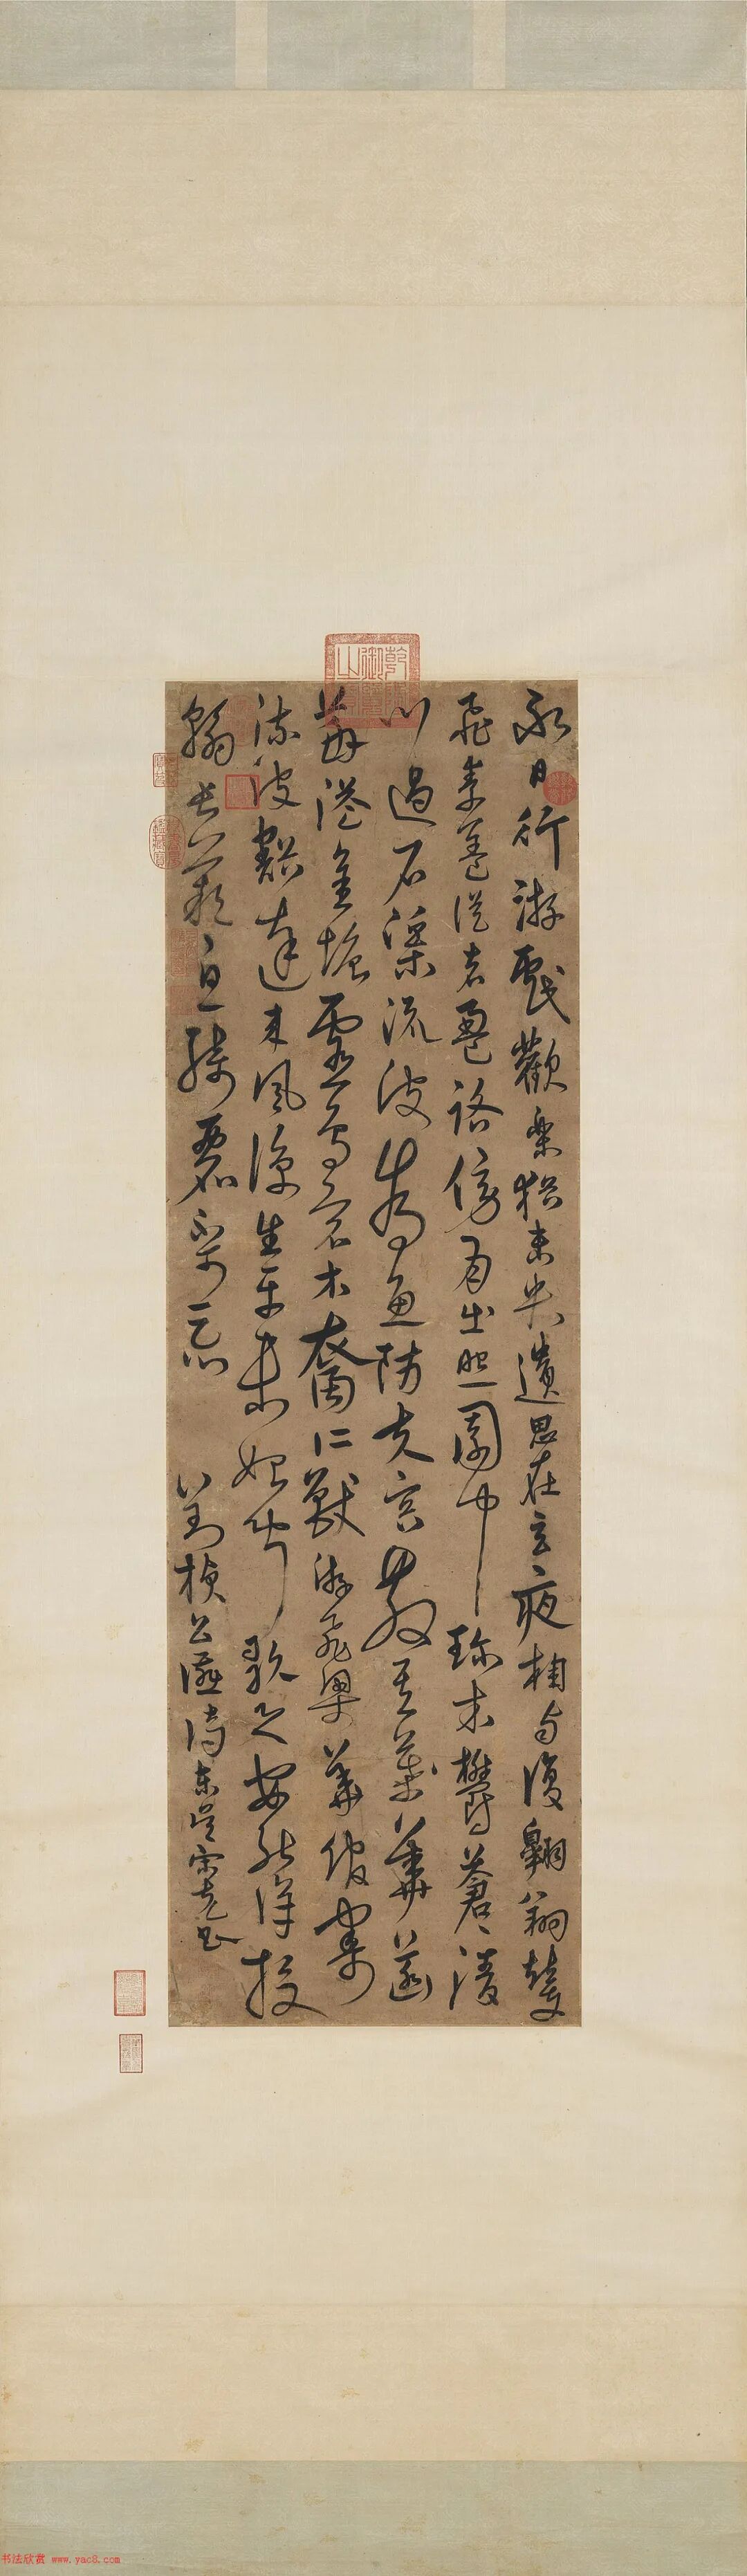 永日行游戲歡樂猶未央遺思在玄夜相與復翱翔
飛素蓋從者盈路傍月出照園中珍木鬱蒼〻清
川過石渠流波為魚防夫容散其華菡
萏溢金塘靈鳥宿水裔仁獸游飛梁華館寄
流波豁達來風涼生平未始聞歌之安能詳投
翰長歎息綺麗不可忘 劉楨公讌詩東吳宋克書
乾隆御覽之寶
书法欣赏 www.yac8.com